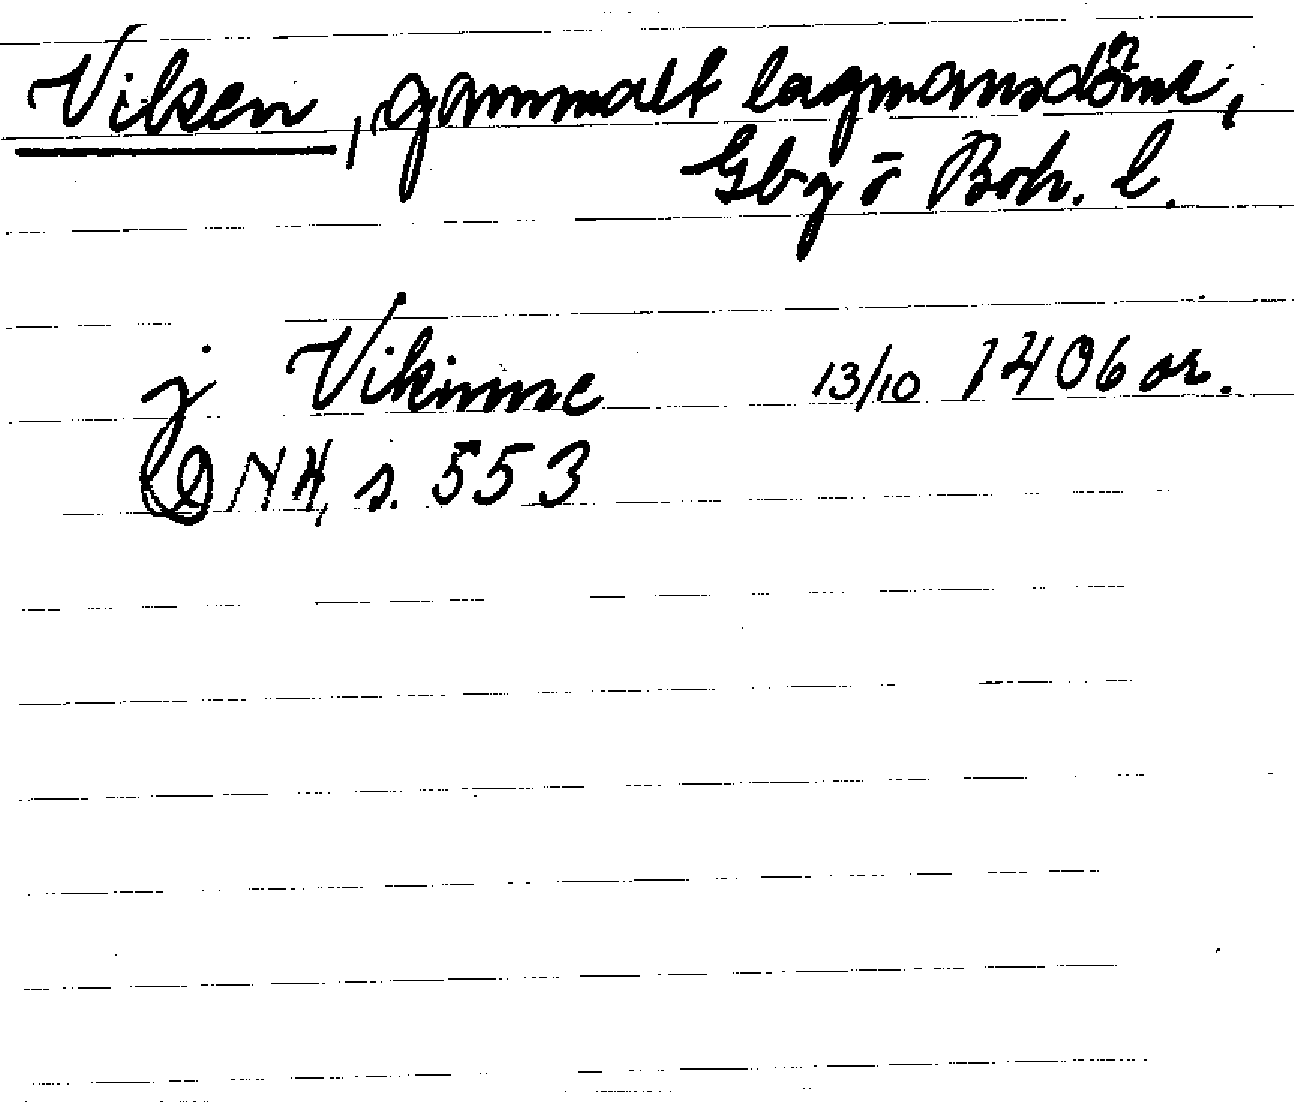 Viken, gammalt lagmansdöme,
Gbg o Boh. l.
j Vikinne 13/10 1406 or.
DNH, s. 553